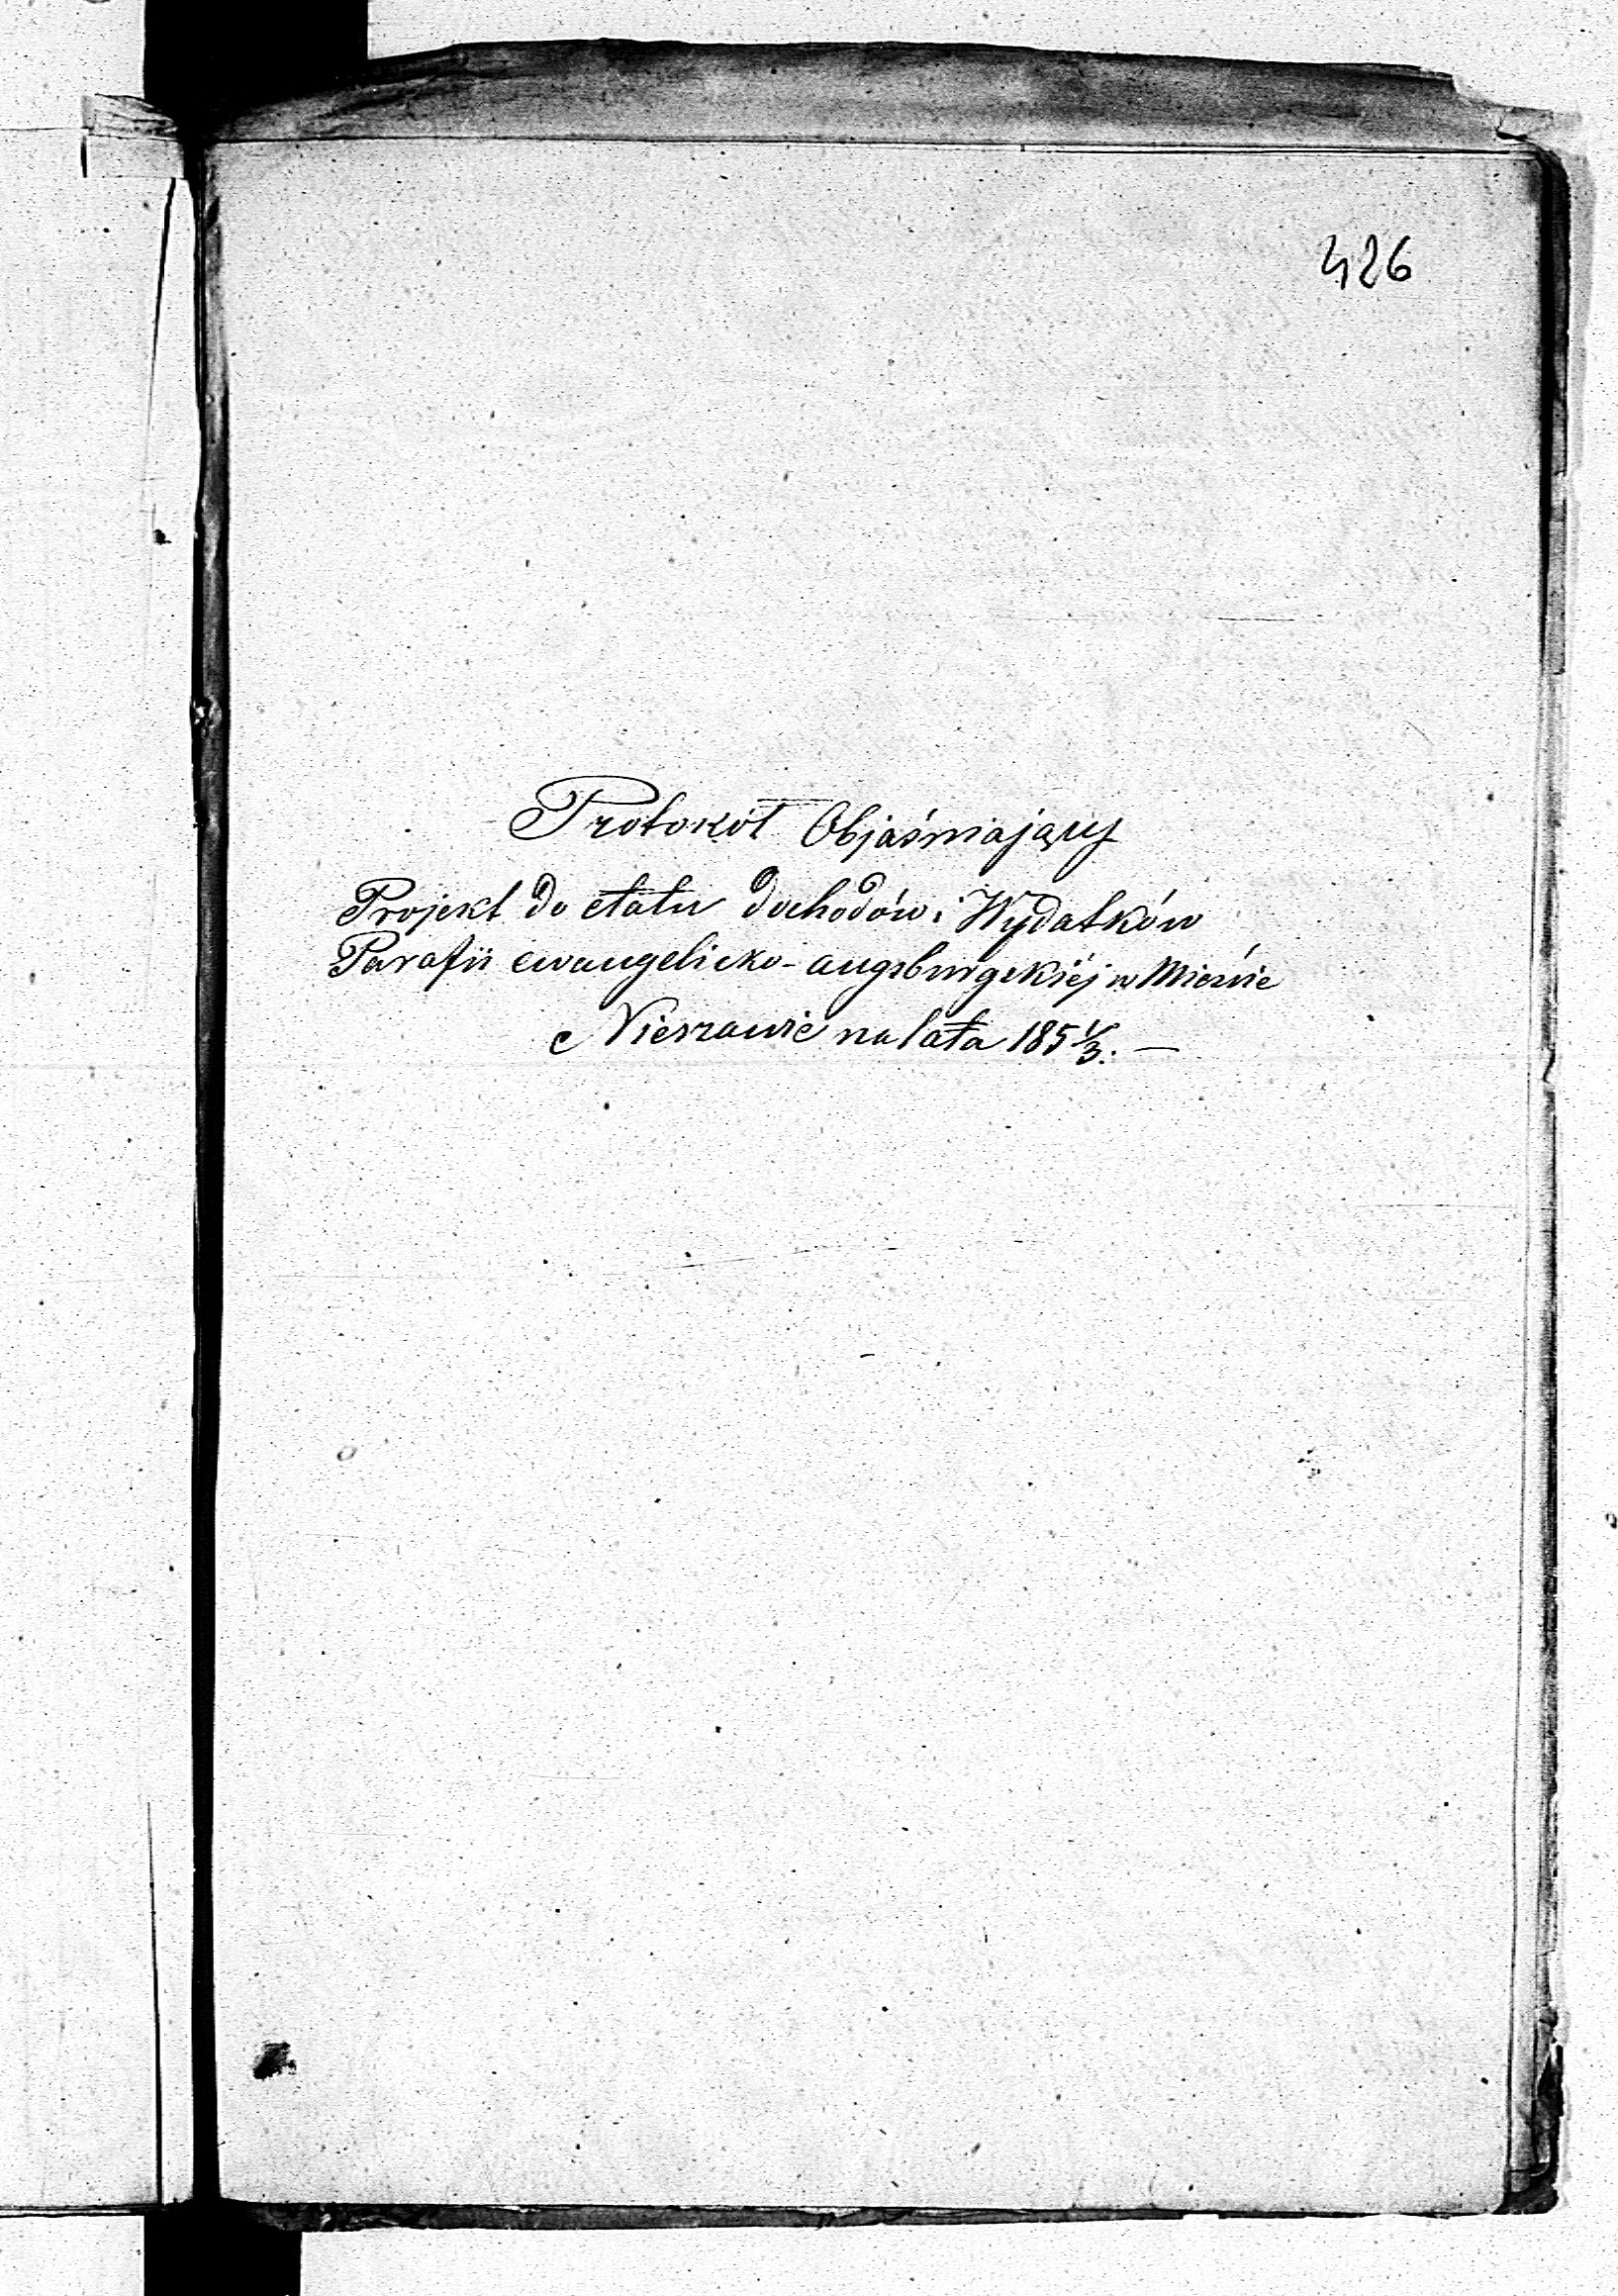 426
Protokół Objaśniający
Projekt do etatu dochodów i Wydatków
Parafii ewangelicko-augsburgskiéj w Mieście
Nieszawie na lata 185 1/3. —